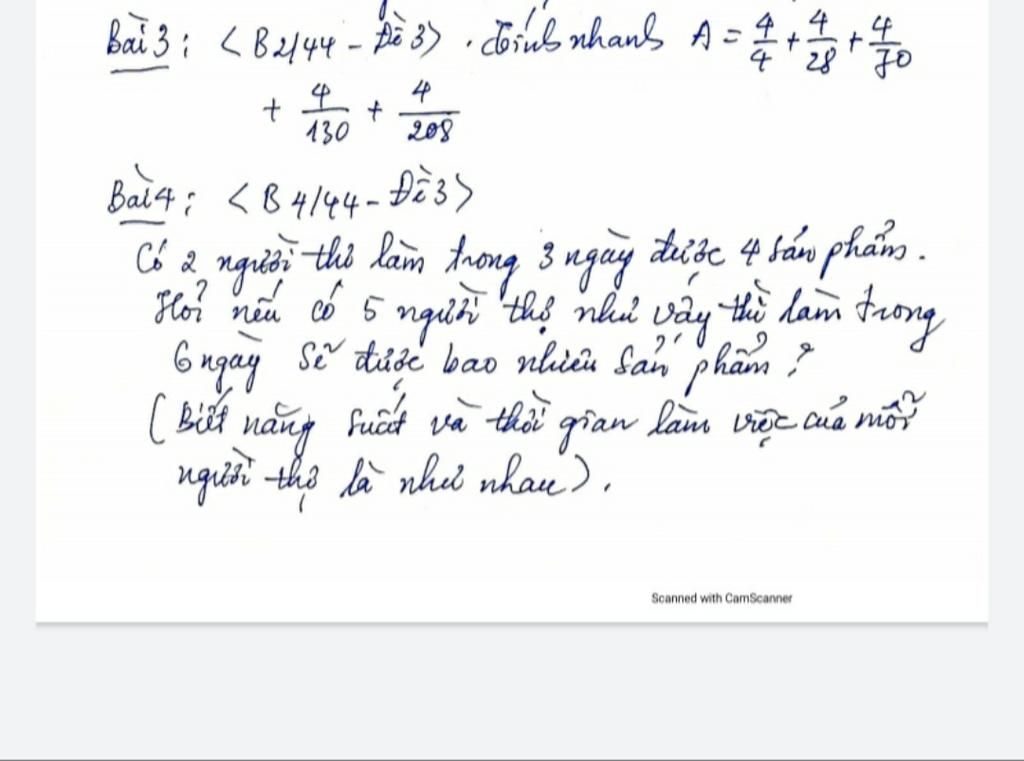 Bài 3: <B2/44 - Đề 3>. Tính nhanh A = 4/4 + 4/28 + 4/70
+ 4/130 + 4/208
Bài 4: <B4/44 - Đề 3>
Có 2 người thợ làm trong 3 ngày được 4 sản phẩm.
Hỏi nếu có 5 người thợ như vậy thì làm trong
6 ngày sẽ được bao nhiêu sản phẩm?
(Biết năng suất và thời gian làm việc của mỗi
người thợ là như nhau).
Scanned with CamScanner